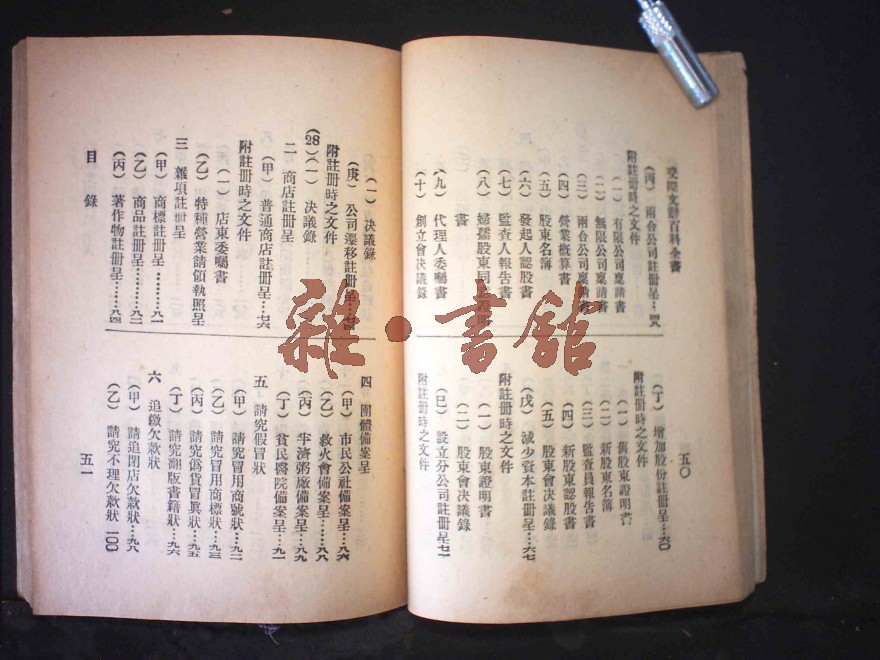 交際文辭百科全書
(丙) 兩合公司註冊呈……四八
附註冊時之文件
(一) 有限公司稟請書
(二) 無限公司稟請書
(三) 兩合公司稟請書
(四) 營業概算書
(五) 股東名簿
(六) 發起人認股書
(七) 監查人報告書
(八) 婦孺股東同意證明
書
(九) 代理人委囑書
(十) 創立會決議錄
五〇
(丁) 增加股份註冊呈……六〇
附註冊時之文件
(一) 舊股東證明書
(二) 新股東名簿
(三) 監查員報告書
(四) 新股東認股書
(五) 股東會決議錄
(戊) 減少資本註冊呈……六七
附註冊時之文件
(一) 股東證明書
(二) 股東會決議錄
(巳) 設立分公司註冊呈七一
附註冊時之文件
(一) 決議錄
(庚) 公司遷移註冊呈……七四
附註冊時之文件
(28) (一) 決議錄
二 商店註冊呈
(甲) 普通商店註冊呈……七六
附註冊時之文件
(一) 店東委囑書
(乙) 特種營業請領執照呈
三 雜項註冊呈
(甲) 商標註冊呈……八一
(乙) 商品註冊呈……八二
(丙) 著作物註冊呈……八四
目錄
四 團體備案呈
(甲) 市民公社備案呈……八六
(乙) 救火會備案呈……八八
(丙) 平濟粥廠備案呈……八九
(丁) 貧民醫院備案呈……九一
五 請究假冒狀
(甲) 請究冒用商號狀……九二
(乙) 請究冒用商標狀……九三
(丙) 請究僞貨冒眞狀……九五
(丁) 請究翻版書籍狀……九六
六 追繳欠款狀
(甲) 請追閉店欠款狀……九八
(乙) 請究不理欠款狀 一〇〇
五一
雜·書館